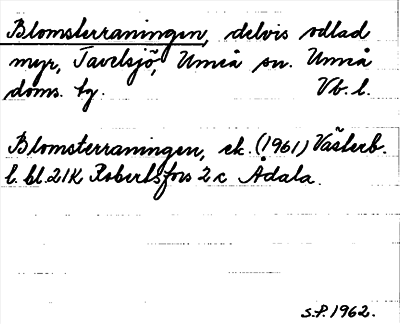 Blomsterraningen, delvis odlad
myr, Tavelsjö, Umeå sn. Umeå
doms. hg. Vb. l.
Blomsterraningen, ek. (1961) Västerb.
l. bl. 21K Robertsfors 2 c Ådala.
S.P. 1962.